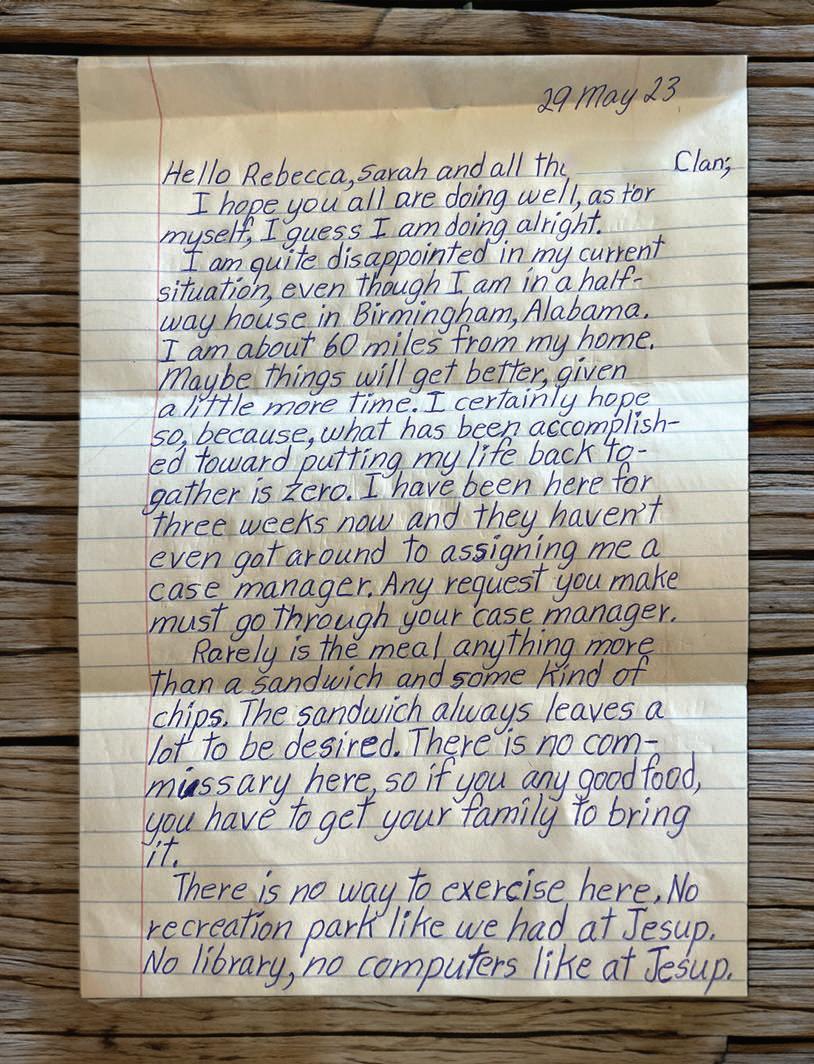 29 May 23
Hello Rebecca, Sarah and all the Clan;
I hope you all are doing well, as for
myself, I guess I am doing alright.
I am quite disappointed in my current
situation, even though I am in a half-
way house in Birmingham, Alabama.
I am about 60 miles from my home.
Maybe things will get better, given
a little more time. I certainly hope
so, because, what has been accomplish-
ed toward putting my life back to-
gather is zero. I have been here for
three weeks now and they haven't
even got around to assigning me a
case manager. Any request you make
must go through your case manager.
Rarely is the meal anything more
than a sandwich and some kind of
chips. The sandwich always leaves a
lot to be desired. There is no com-
missary here, so if you any good food,
you have to get your family to bring
it.
There is no way to exercise here. No
recreation park like we had at Jesup.
No library, no computers like at Jesup.